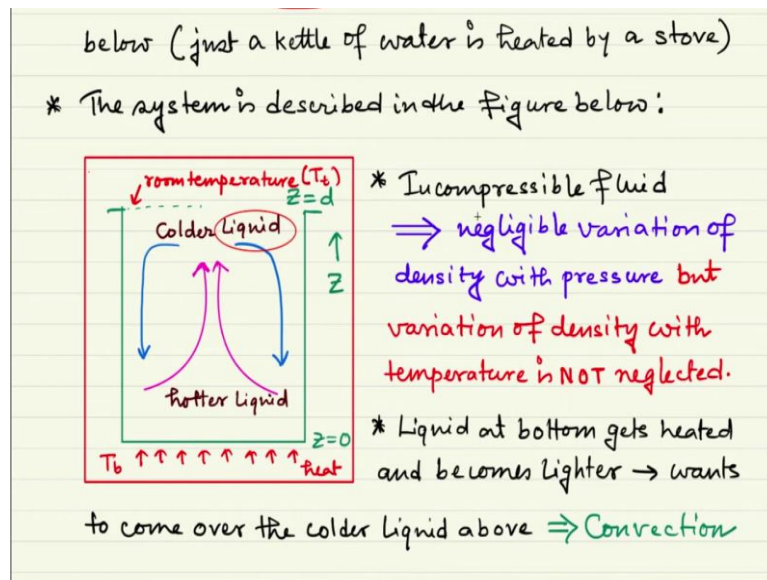 below (just a kettle of water is heated by a stove)
* The system is described in the figure below:
room temperature (T_t)
z=d
Colder Liquid
↑
z
hotter Liquid
z=0
T_b ↑ ↑ ↑ ↑ ↑ ↑ ↑ ↑ ↑ heat
* Incompressible fluid
⇒ negligible variation of
density with pressure but
variation of density with
temperature is NOT neglected.
* Liquid at bottom gets heated
and becomes lighter → wants
to come over the colder liquid above ⇒ Convection